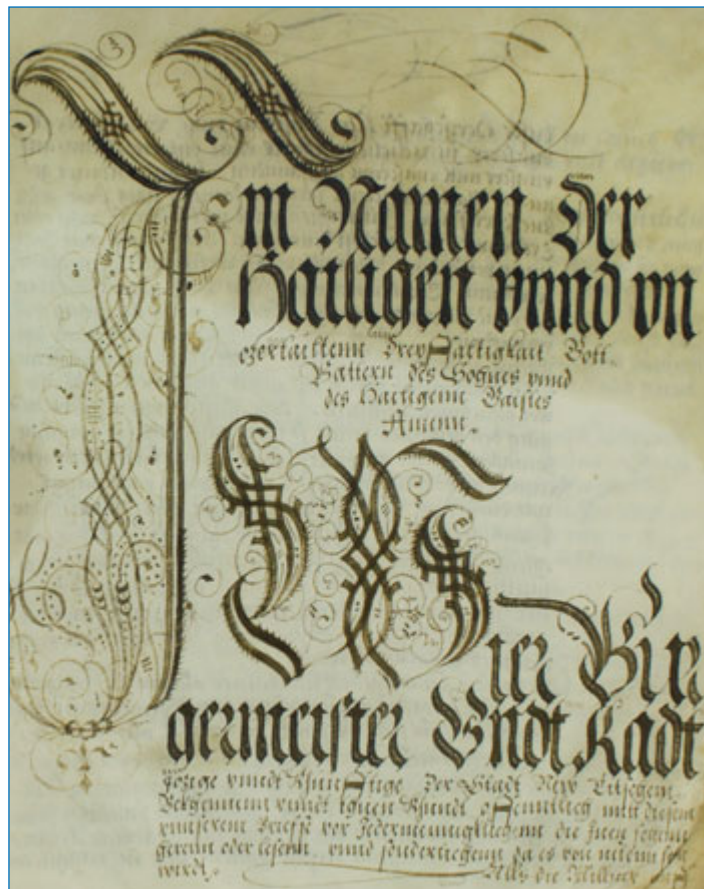 Im Namen der
Hailigen vnnd vn
czertailtenn Dreyfaltigkait Gott
Vattern des Sohnes vnnd
des Hailigenn Gaistes
Amenn.
Wier Bür
germeister Vndt Radt
Jeczige vnndt Khunfftige Der Stadt New Titschein
Bekhennenn vnndt thuen Khundt offenntlich mit diesem
vnnserem Brieffe vor Jedermenniglichenn die
oder lesenn, vnnd sonderlichenn da es von
wirdt.